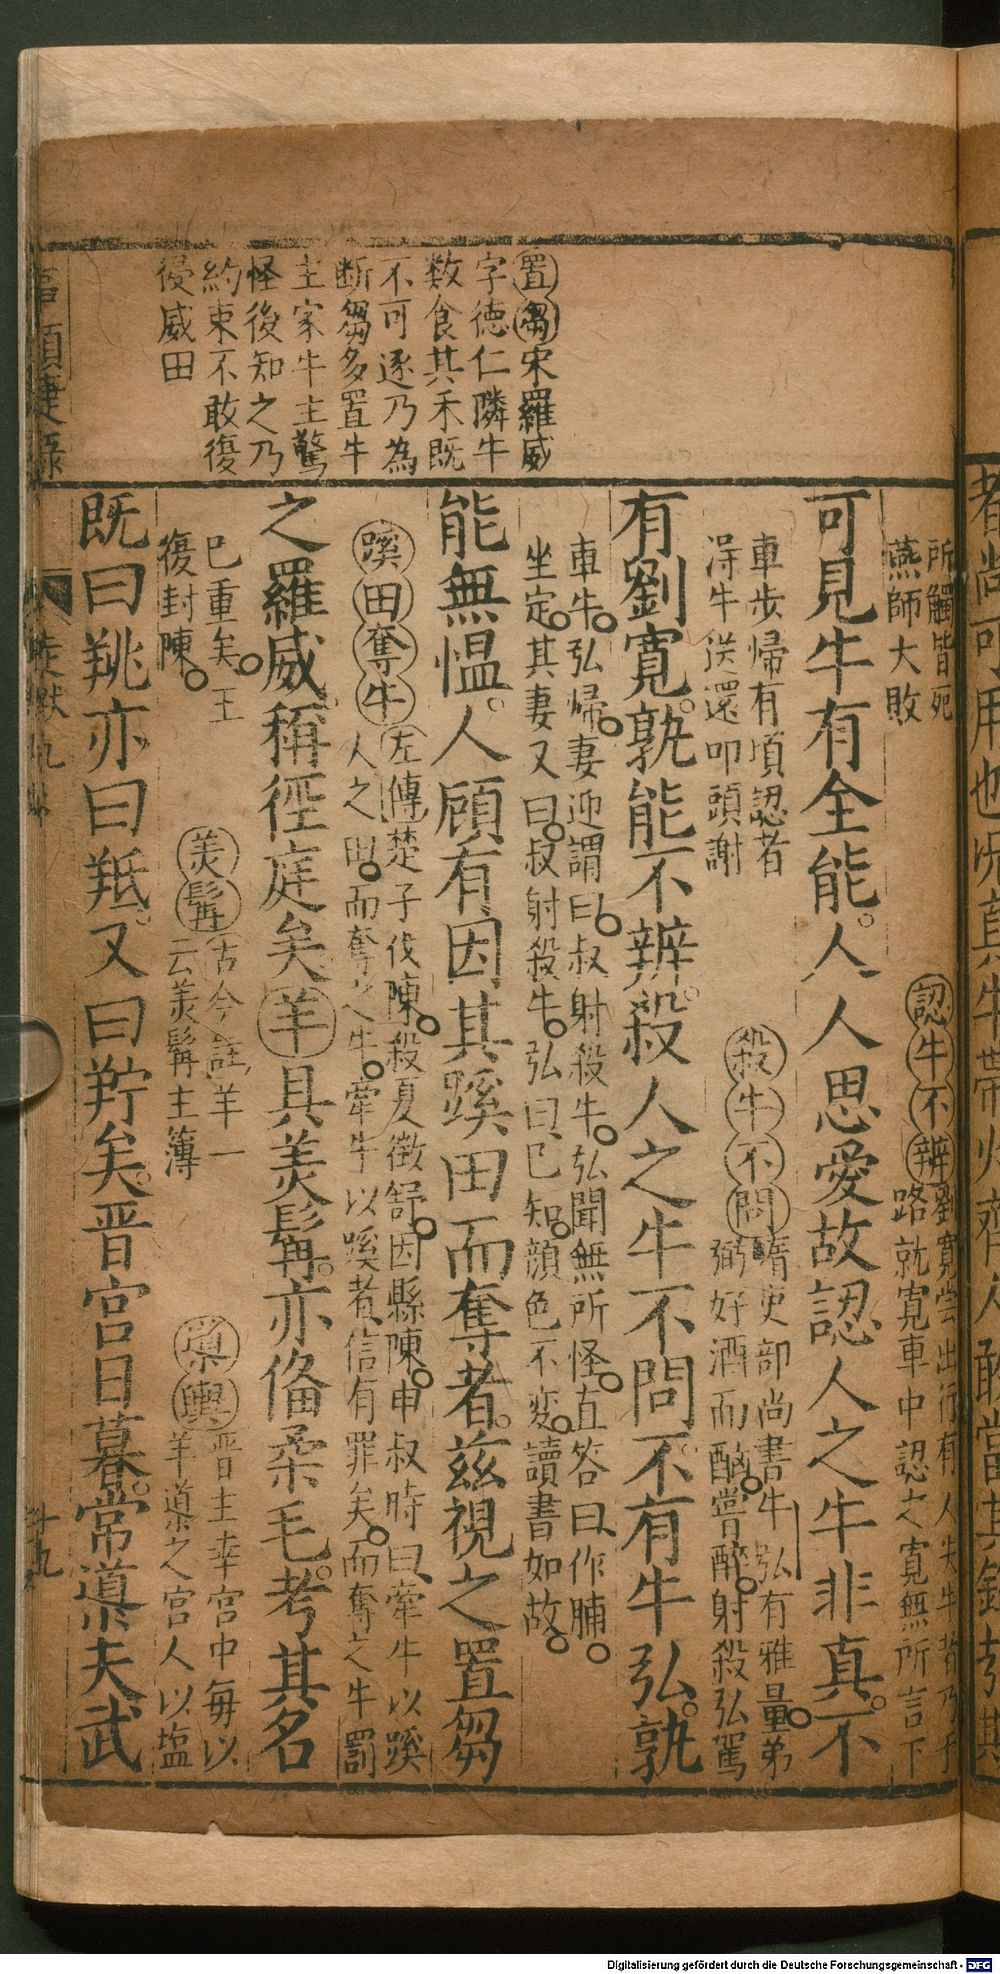 置芻宋羅威
字德仁隣牛
数食其禾既
不可逐乃為
断芻多置牛
主家牛主驚
怪後知之乃
約束不敢復
侵威田
所觸皆死
燕師大敗
認牛不辨劉寬嘗出行有人失牛者乃于
路就寬車中認之寬無所言下
可見牛有全能。人人思愛故認人之牛非真。不
車步帰有頃認者
淂牛送還叩頭謝
殺牛不問隋吏部尚書牛弘有雅量弟
弼好酒而酗嘗醉射殺弘駕
有劉寬。孰能不辨。殺人之牛不問。不有牛弘。孰
車牛弘帰妻迎謂曰叔射殺牛弘聞無所怪直答曰作脯
坐定其妻又曰叔射殺牛弘曰已知顔色不变讀書如故
能無愠。人顧有因其蹊田而奪者。兹視之置芻
蹊田奪牛左傳楚子伐陳殺夏徵舒因縣陳申叔時曰牽牛以蹊
人之田而奪之牛牽牛以蹊者信有罪矣而奪之牛罰
之羅威。稱徑庭矣。羊具羙髯。亦俻柔毛。考其名
已重矣王
復封陳
羙髯古今註羊一
云羙髯主簿
導輿晋主幸宫中每以
羊導之宫人以塩
既曰羝。又曰羜矣。晋宫日暮。常導夫武
捷録
十九
Digitalisierung gefördert durch die Deutsche Forschungsgemeinschaft - DFG